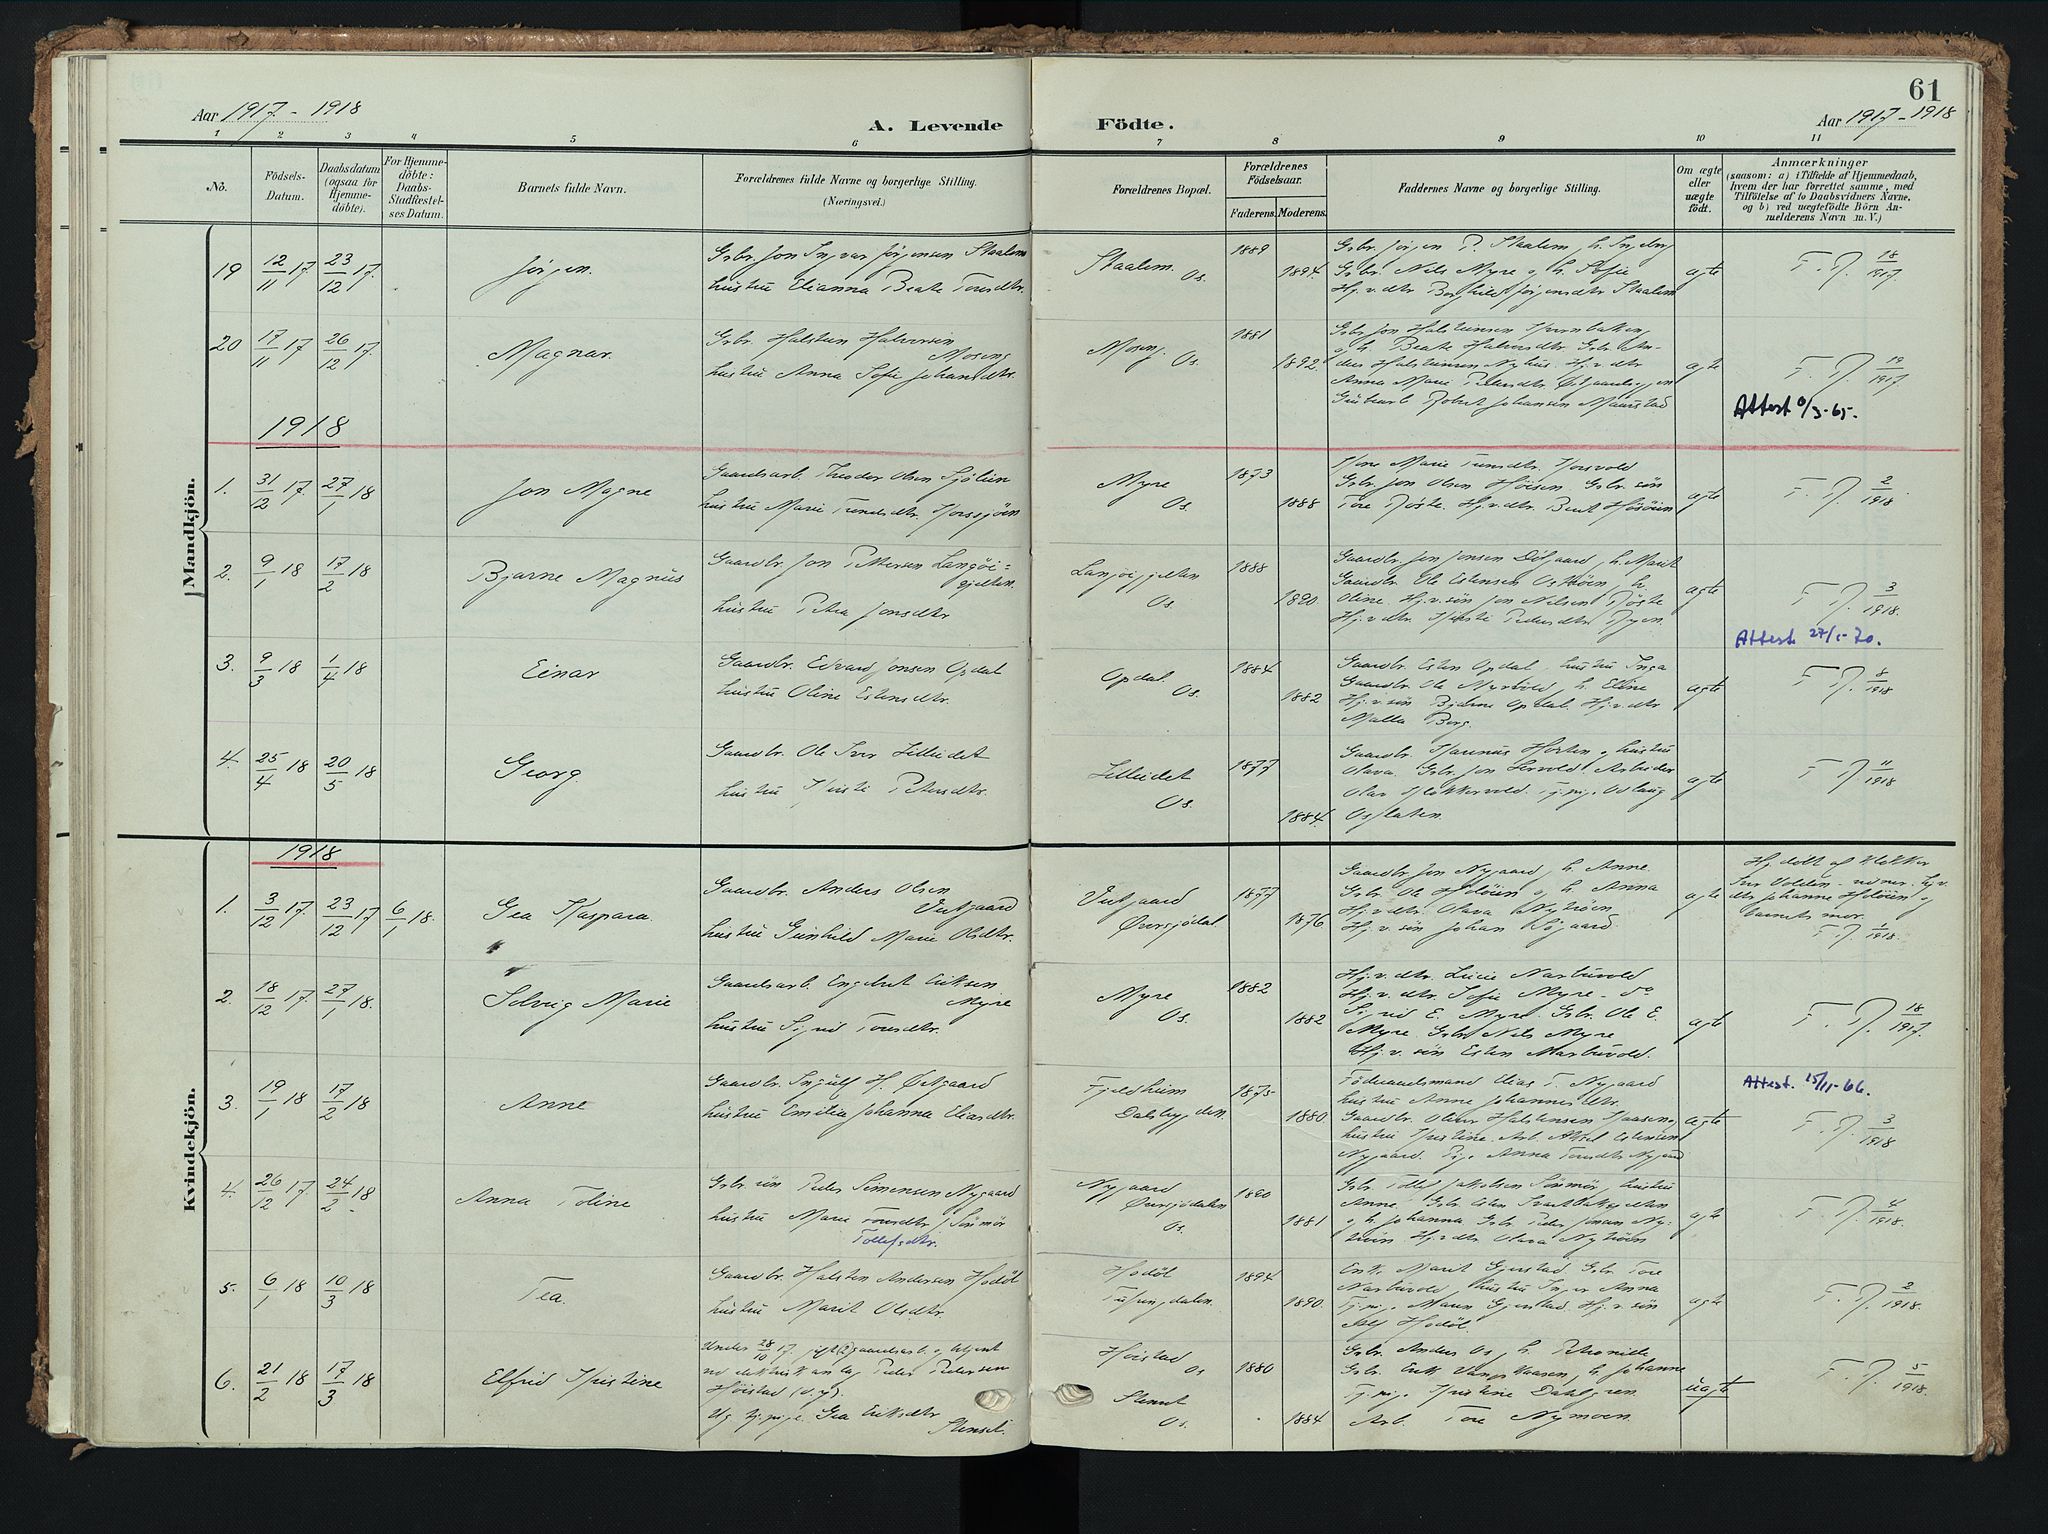 61
Aar 1917 - 1918
A. Levende Födte.
Aar 1917 - 1918
1 2 3 4 5 6 7 8 9 10 11
No.
Födsels-Datum.
Daabsdatum (ogsaa for Hjemme-döbte).
For Hjemme-döbte: Daabs-Stadfæstel-ses Datum.
Barnets fulde Navn.
Forældrenes fulde Navne og borgerlige Stilling.
(Næringsvei.)
Forældrenes Bopæl.
Forældrenes Födselsaar.
Faderens. Moderens.
Faddernes Navne og borgerlige Stilling.
Om ægte eller uægte födt.
Anmærkninger
(saasom: a) i Tilfælde af Hjemmedaab, hvem der har forrettet samme, med Tilföielse af to Daabsvidners Navne, og b) ved uægtefödte Börn An-melderens Navn m. V.)
Mandkjön.
19 12/11 17 23/12 17. Jörgen. Gsbr. Jon Ingvar Jörgensen Staalem
hustru Elianna Beate Toresdtr.
Staalem. Os. 1889 1894.
Gsbr. Jörgen P. Staalem, h. Ingebor
Gsbr. Nils Myre og h. Sofie
Hj.v.dtr Borghild Jörgensdtr Staalem
ægte F. P. 18/1917.
20 17/11 17 26/12 17. Magnar. Gsbr. Halsten Halvorsen
Moseng
hustru Anna Sofie Johansdtr.
Moseng. Os. 1881 1892.
Gsbr Jon Halstensen
h. Beate Halvorsdtr Gsbr. An-
ders Halstensen Hj.v.dtr
Anna Marie Pedersdtr
Johansen
ægte F. P. 19/1917
Attest 0/3-65.
1918
1. 31/12 17. 27/1 18 Jon Magne Gaardsarb. Theodor Olsen Sjölien
hustru Marie
Myre Os. 1873 1888
Kone Marie
Gsbr. Jon Olsen Gsbr. sön
Tore Röste. Hj.v.dtr. Berit
ægte F. P. 2/1918
2. 9/1 18 17/2 18 Bjarne Magnus Gaardbr. Jon Pettersen Langöi-
gjelten.
hustru Petra Jonsdtr
Langöigjelten Os. 1888 1890.
Gaardbr. Jon Jonsen h. Marit
Gaardbr. Ole Estensen h.
Oline. Hj.v.sön Jon Nilsen Röste
Hj.v.dtr. Pedersdtr Ryen.
ægte F P. 3/1918.
Attest 27/1-70.
3. 9/3 18 1/4 18 Einar Gaardbr. Edvard Jonsen Opdal
hustru Oline Estensdtr.
Opdal. Os. 1884 1882
Gaardbr. Esten Opdal, hustru Inga
Gaardbr. Ole h. Eline
Hj.v.sön Bjarne Opdal. Hj.v.dtr
Malla Berg.
ægte F P. 8/1918
4. 25/4 18 20/5 18 Georg. Gaardbr. Ole Iver Lilleidet
hustru Kirsti Petersdtr.
Lilleidet Os. 1877 1884.
Gaardbr. hustru
Olava. Gsbr. Jon Arbeider
Olav
ægte F P. 11/1918
Kvindekjön.
1918
1. 3/12 17. 23/12 17 6/1 18. Gea Kaspara. Gaardbr. Anders Olsen
Utgaard
hustru Gunhild Marie Olsdtr.
Utgaard Översjödal. 1877 1876
Gaardbr Jon Nygaard, h. Anne
Gsbr. Ole og h. Anna
Hj.v.dtr. Olava Nytröen
Hj.v.sön Johan
ægte Hj. döbt af Klokker
Iver Volden
dtr Johanne og
barnets mor.
F. P. 1/1918.
2. 18/12 17. 27/1 18. Solveig Marie Gaardsarb. Engebret Eriksen
Myre
hustru Sigrid Toresdtr.
Myre Os. 1882 1882
Hj.v.dtr. Lucie Narbuvold
Hj.v.dtr. Sofie Myre - do
Sigrid E. Myre. Gsbr. Ole E.
Myre. Gsbr Nils Myre
Hj.v. sön Esten Narbuvold.
ægte F. P. 18/1917.
3. 19/1 18 17/2 18 Anne Gaardbr. Ingulf H. Östgaard
hustru Emilie Johanna Eliasdtr.
Fjeldheim Dalsbygden. 1875 1880
Föderaadsmand Elias T. Nygaard
hustru Anne Johannesdtr.
Gaardbr. Oluv Halstensen
hustru Kristine. Arb. Estensen
Nygaard. Pige Anna
ægte Attest. 15/11-66.
F. P. 3/1918
4. 26/12 17 24/2 18 Anna Toline Gsbr sön Peder Simensen Nygaard
hustru Marie Toresdtr Sömör
Tollefsdtr.
Nygaard Översjödalen Os. 1880 1881
Gsbr. Tollef Jakobsen Sömör, hustru
Anne. Gsbr. Esten
og h. Johanna Gsbr. Peder Ny-
tröen. Hj.v.dtr. Olava Nytröen
ægte F. P. 4/1918.
5. 6/1 18 10/3 18 Tea. Gaardbr. Halsten Andersen Hodöl
hustru Marit Olsdtr.
Hodöl Tufsingdalen. 1894 1890.
Enke Marit Gjerstad. Gsbr. Tore
Narbuvold, hustru Inger Anna
Tj.pige Maren Gjerstad. Hj.v. sön
Alf Hodöl.
ægte F. P. 2/1918.
6. 21/2 18 17/3 18 Elfrid Kristine Under 28/10 17. gift(?) gaardsarb. og betjent
ved elektrisk anlæg Peder Pedersen
Höistad (o.g).
Ug tj.pige. Gea Eriksdtr
Stenset.
Höistad Os 1880
Stenset Os. 1884
Gsbr. Anders Os, h. Petronille
Gsbr. Erik h. Johanne
Tj.pige Kristine Dahlgren.
Arb. Tore Nymoen.
uægte F. P. 5/1918.